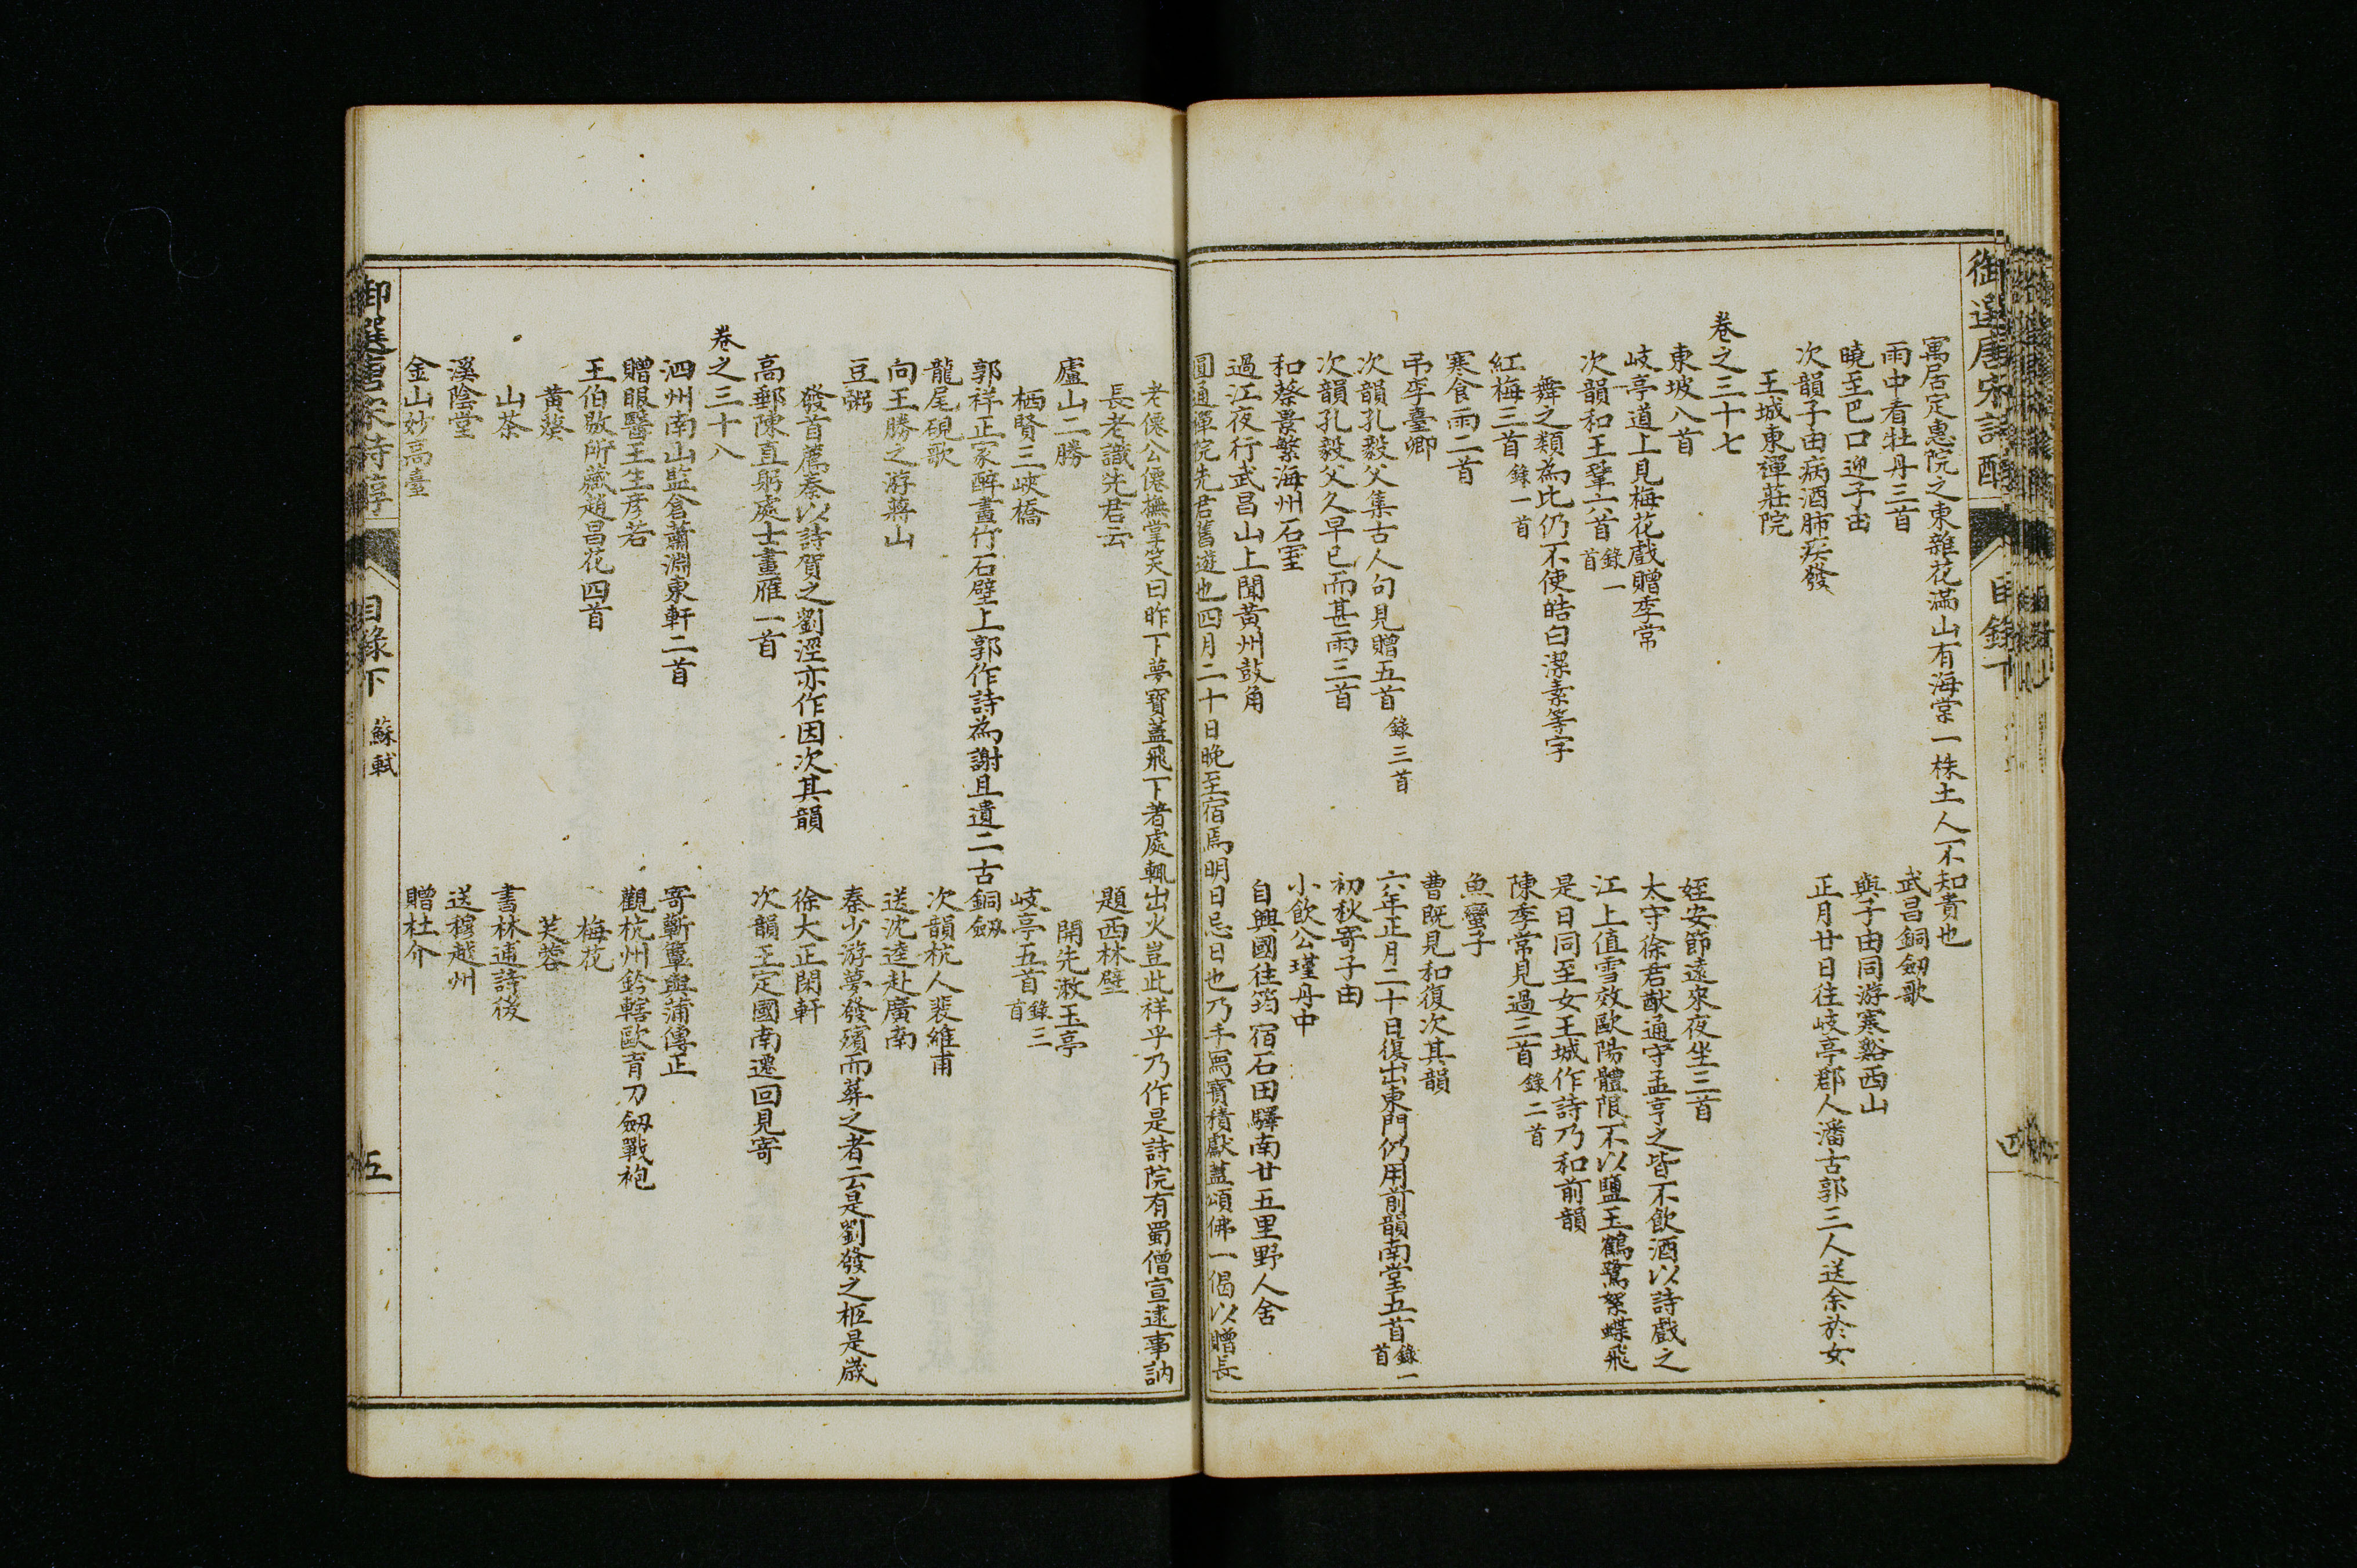 御選唐宋詩醇
目錄下
寓居定惠院之東雜花滿山有海棠一株土人不知貴也
雨中看牡丹三首
武昌銅劒歌
曉至巴口迎子由
與子由同游寒谿西山
次韻子由病酒肺疾發
正月廿日往岐亭郡人潘古郭三人送余於女
王城東禪莊院
卷之三十七
東坡八首
姪安節遠來夜坐三首
岐亭道上見梅花戲贈季常
太守徐君猷通守孟亨之皆不飲酒以詩戲之
次韻和王鞏六首錄一首
江上值雪效歐陽體限不以鹽玉鶴鷺絮蝶飛
舞之類為比仍不使皓白潔素等字
是日同至女王城作詩乃和前韻
紅梅三首錄一首
陳季常見過三首錄二首
寒食雨二首
魚蠻子
弔李臺卿
曹既見和復次其韻
次韻孔毅父集古人句見贈五首錄三首
六年正月二十日復出東門仍用前韻南堂五首錄一首
次韻孔毅父久旱已而甚雨三首
初秋寄子由
和蔡景繁海州石室
小飲公瑾舟中
過江夜行武昌山上聞黃州鼓角
自興國往筠宿石田驛南廿五里野人舍
圓通禪院先君舊遊也四月二十日晚至宿焉明日忌日也乃手寫寶積獻蓋頌佛一偈以贈長
老僊公僊撫掌笑曰昨下夢寶蓋飛下著處輒出火豈此祥乎乃作是詩院有蜀僧宣逮事訥
長老識先君云
題西林壁
廬山二勝
開先漱玉亭
栖賢三峽橋
岐亭五首錄三首
郭祥正家醉畫竹石壁上郭作詩為謝且遺二古銅劒
龍尾硯歌
次韻杭人裴維甫
向王勝之游蔣山
送沈逵赴廣南
豆粥
秦少游夢發殯而葬之者云是劉發之柩是歲
發首薦秦以詩賀之劉涇亦作因次其韻
徐大正閑軒
高郵陳直躬處士畫雁一首
次韻王定國南遷回見寄
卷之三十八
泗州南山監倉蕭淵東軒二首
寄蘄簟與蒲傳正
贈眼醫王生彥若
觀杭州鈐轄歐育刀劒戰袍
王伯敭所藏趙昌花四首
梅花
黃葵
芙蓉
山茶
書林逋詩後
溪陰堂
送穆越州
金山妙高臺
贈杜介
御選唐宋詩醇
目錄下
蘇軾
五